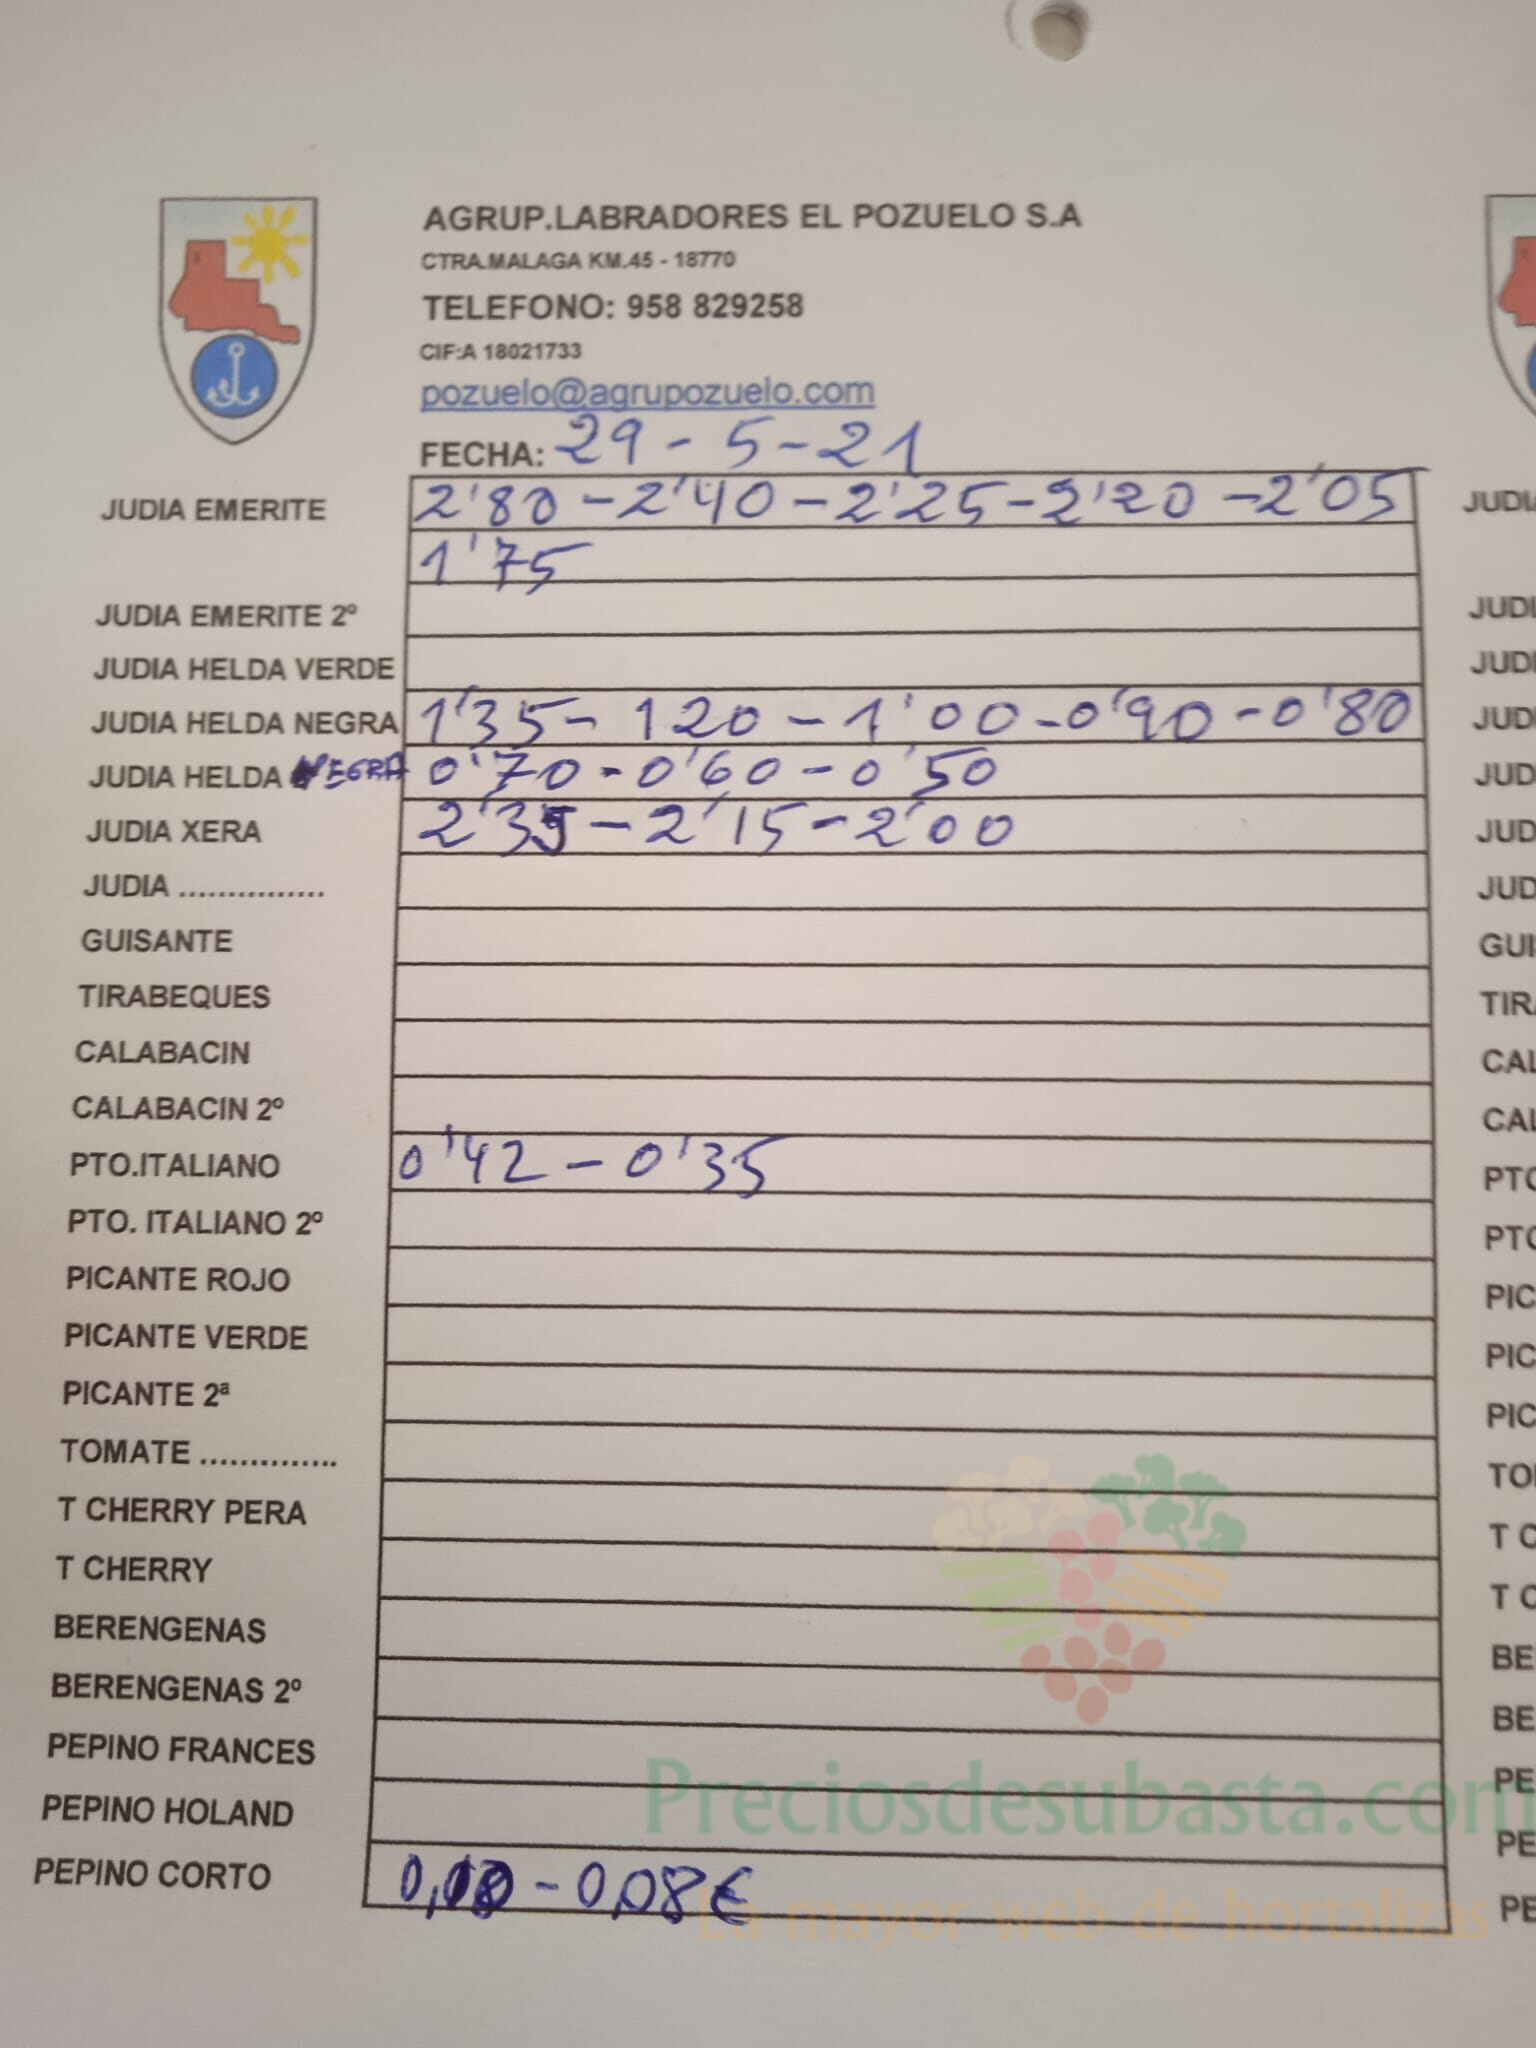 AGRUP.LABRADORES EL POZUELO S.A
CTRA.MALAGA KM.45 - 18770
TELEFONO: 958 829258
CIF:A 18021733
pozuelo@agrupozuelo.com
FECHA: 29 - 5 - 21
JUDIA EMERITE 2'80 - 2'40 - 2'25 - 2'20 - 2'05
1'75
JUDIA EMERITE 2º
JUDIA HELDA VERDE
JUDIA HELDA NEGRA 1'35 - 120 - 1'00 - 0'90 - 0'80
JUDIA HELDA NEGRA 0'70 - 0'60 - 0'50
JUDIA XERA 2'35 - 2'15 - 2'00
JUDIA ...............
GUISANTE
TIRABEQUES
CALABACIN
CALABACIN 2º
PTO.ITALIANO 0'42 - 0'35
PTO. ITALIANO 2º
PICANTE ROJO
PICANTE VERDE
PICANTE 2ª
TOMATE ..............
T CHERRY PERA
T CHERRY
BERENGENAS
BERENGENAS 2º
PEPINO FRANCES
PEPINO HOLAND
PEPINO CORTO - 0,08€
Preciosdesubasta.com
La mayor web de hortalizas